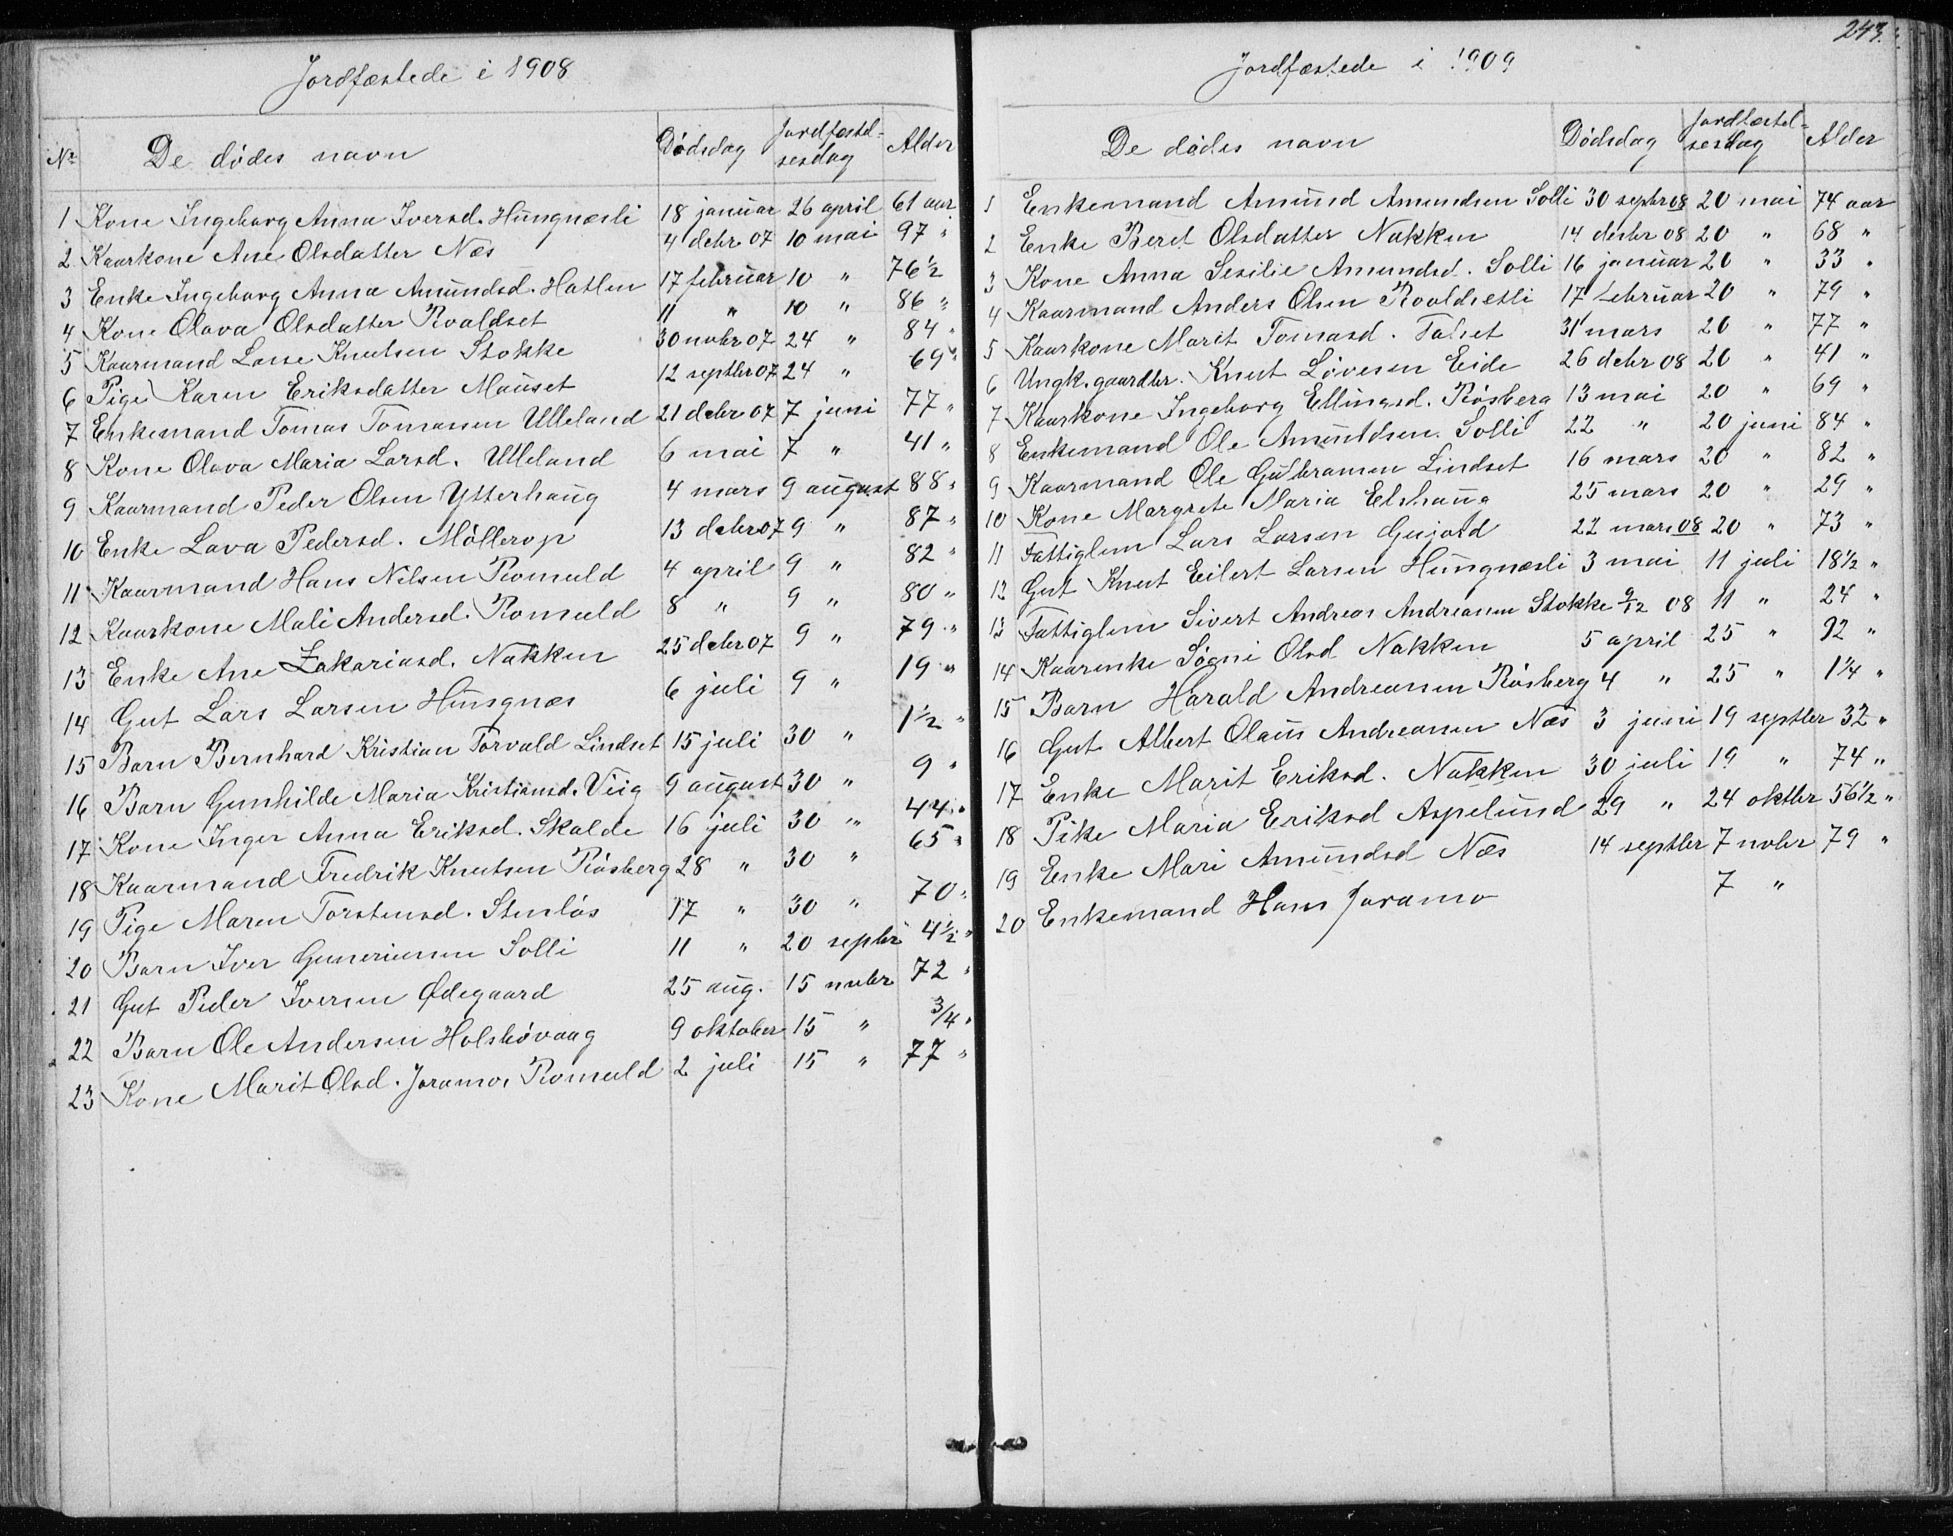 Jordfæstede i 1908
No De dødes navn Dødsdag Jordfæstelsesdag Alder
1 Kone Ingeborg Anna Iversd. Hungnæsli 18 januar 26 april 61 aar
2 Kaarkone Ane Olsdatter Næs 4 debr 07 10 mai 97 "
3 Enke Ingeborg Anna Amundsd. Hatlen 17 februar 10 " 76½
4 Kone Olava Olsdatter Roaldset 11 " 10 " 86 "
5 Kaarmand Lasse Knutsen Stokke 30 novbr 07 24 " 84 "
6 Pige Karen Eriksdatter Mauset 12 septbr 07 24 " 69 "
7 Enkemand Tomas Tomassen Ulleland 21 debr 07 7 juni 77 "
8 Kone Olava Maria Larsd. Ulleland 6 mai 7 " 41 "
9 Kaarmand Peder Olsen Ytterhaug 4 mars 9 august 88 "
10 Enke Lava Pedersd. Møllerop 13 debr 07 9 " 87 "
11 Kaarmand Hans Nilsen Romuld 4 april 9 " 82 "
12 Kaarkone Mali Andersd. Romuld 8 " 9 " 80 "
13 Enke Ane Zakariasd. Nakken 25 debr 07 9 " 79 "
14 Gut Lars Larsen Hungnæs 6 juli 9 " 19 "
15 Barn Bernhard Kristian Torvald Lindset 15 juli 30 " 1½ "
16 Barn Gunhilde Maria Kristiansd. Viig 9 august 30 " 9 "
17 Kone Inger Anna Eriksd. Skalde 16 juli 30 " 44 "
18 Kaarmand Fredrik Knutsen Røsberg 28 " 30 " 65 "
19 Pige Maren Torstensd. Stenløs 17 " 30 " 70 "
20 Barn Iver Gunneriussen Solli 11 " 20 septbr 4½ "
21 Gut Peder Iversen Ødegaard 25 aug. 15 nvbr 72 "
22 Barn Ole Andersen Holshøvaag 9 oktober 15 " 3/4 "
23 Kone Marit Olsd. Joramo, Romuld 2 juli 15 " 77 "
243.
Jordfæstede i 1909
De dødes navn Dødsdag Jordfæstelsesdag Alder
1 Enkemand Amund Amundsen Solli 30 septbr 08 20 mai 74 aar
2 Enke Beret Olsdatter Nakken 14 desbr 08 20 " 68 "
3 Kone Anna Sesilie Amundsd. Solli 16 januar 20 " 33 "
4 Kaarmand Anders Olsen Roaldsetli 17 februar 20 " 79 "
5 Kaarkone Marit Tomasd. Talset 31 mars 20 " 77 "
6 Ungk. gaardbr. Knut Løvesen Eide 26 debr 08 20 " 41 "
7 Kaarkone Ingeborg Ellingsd. Røsberg 13 mai 20 " 69 "
8 Enkemand Ole Amundsen Solli 22 " 20 juni 84 "
9 Kaarmand Ole Gulbransen Lindset 16 mars 20 " 82 "
10 Kone Margrete Maria Elshaug 25 mars 20 " 29 "
11 Fattiglem Lars Larsen Gujord 22 mars 08 20 " 73 "
12 Gut Knut Eilert Larsen Hungnæsli 3 mai 11 juli 18½ "
13 Fattiglem Sivert Andreas Andreassen Stokke 9/12 08 11 " 24 "
14 Kaarenke Søgni Olsd Nakken 5 april 25 " 92 "
15 Barn Harald Andreassen Røsberg 4 " 25 " 1¼ "
16 Gut Albert Olaus Andreassen Næs 3 juni 19 septbr 32 "
17 Enke Marit Eriksd. Nakken 30 juli 19 " 74 "
18 Pike Maria Eriksd Aspelund 29 " 24 oktbr 56½ "
19 Enke Mari Amundsd Næs 14 septbr 7 nobr 79 "
20 Enkemand Hans Joramo 7 "